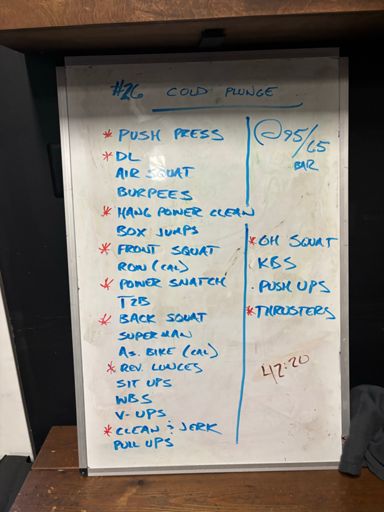 #26 COLD PLUNGE
* PUSH PRESS
* DL
AIR SQUAT
BURPEES
* HANG POWER CLEAN
BOX JUMPS
* FRONT SQUAT
ROW (CAL)
* POWER SNATCH
T2B
* BACK SQUAT
SUPERMAN
As. BIKE (CAL)
* REV. LUNGES
SIT UPS
WBS
V-UPS
* CLEAN & JERK
PULL UPS
@95/65
BAR
* OH SQUAT
KBS
PUSH UPS
* THRUSTERS
42:20